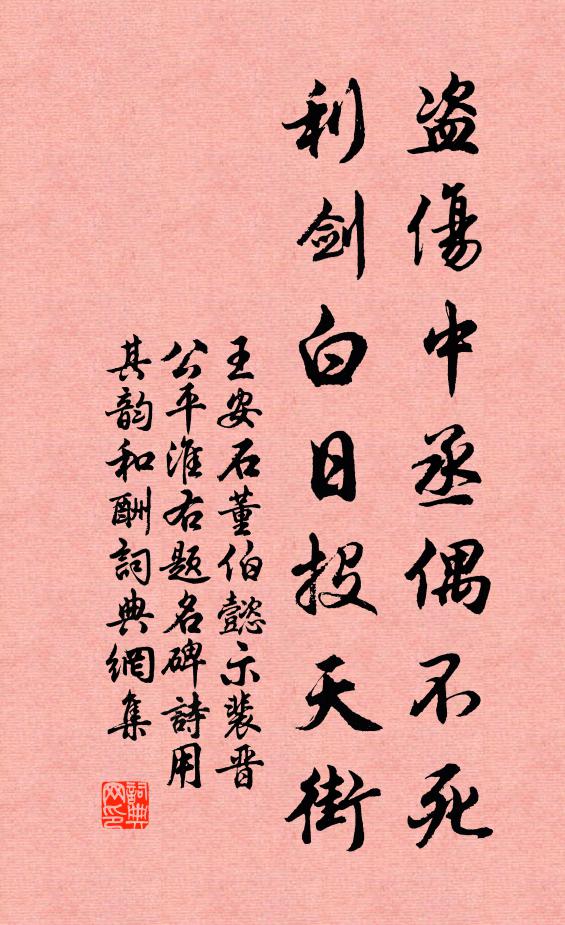 盗傷中丞偶不死
利劍白日投天街
王安石董伯懿示裴晋
公平淮右題名碑詩用
其韵和酬詞典網集
詞典网印